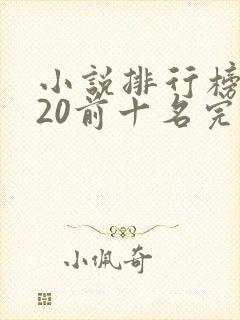 小説排行榜
20前十名完
小佩奇